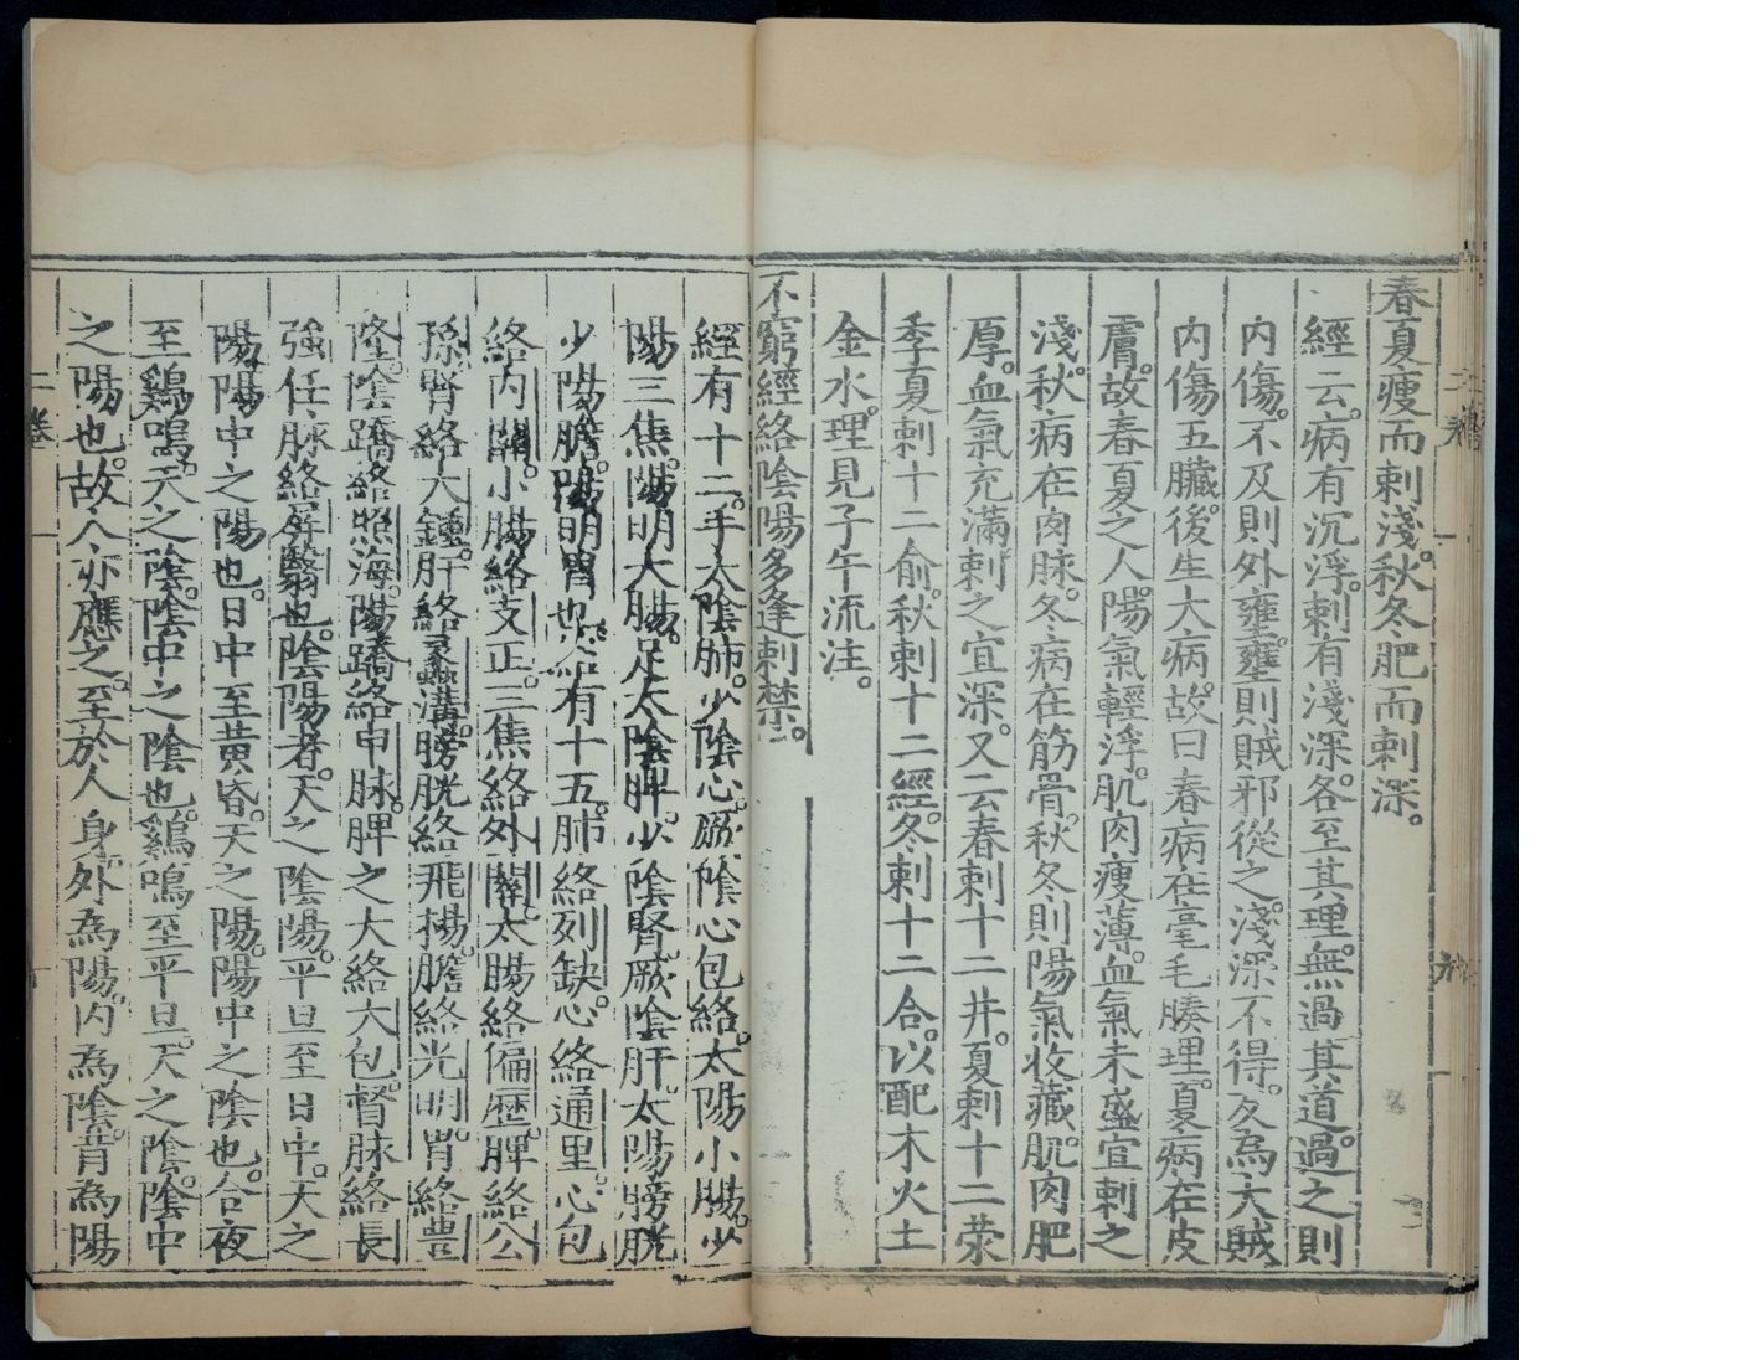 春夏瘦而刺淺。秋冬肥而刺深。
經云。病有沉浮。刺有淺深。各至其理。無過其道。過之則
内傷。不及則外壅。壅則賊邪從之。淺深不得。反為大賊
内傷五臟。後生大病。故曰春病在毫毛腠理。夏病在皮
膚。故春夏之人。陽氣輕浮。肌肉瘦薄。血氣未盛。宜刺之
淺。秋病在肉脉。冬病在筋骨。秋冬則陽氣收藏。肌肉肥
厚。血氣充滿。刺之宜深。又云春刺十二井。夏刺十二滎
季夏刺十二俞。秋刺十二經。冬刺十二合。以配木火土
金水。理見子午流注。
不窮經絡陰陽。多逢刺禁。
經有十二。手太陰肺。少陰心。厥陰心包絡。太陽小腸。少
陽三焦。陽明大腸。足太陰脾。少陰腎。厥陰肝。太陽膀胱
少陽膽。陽明胃也。絡有十五。肺絡列缺。心絡通里。心包
絡内關。小腸絡支正。三焦絡外關。大腸絡偏歷。脾絡公
孫。腎絡大鍾。肝絡蠡溝。膀胱絡飛揚。膽絡光明。胃絡豊
隆。陰蹻絡照海。陽蹻絡申脉。脾之大絡大包。督脉絡長
強。任脉絡屏翳也。陰陽者。天之陰陽。平旦至日中。天之
陽。陽中之陽也。日中至黄昏。天之陽。陽中之陰也。合夜
至鷄鳴。天之陰。陰中之陰也。鷄鳴至平旦。天之陰。陰中
之陽也。故人亦應之。至於人身。外為陽。内為陰。背為陽
二卷